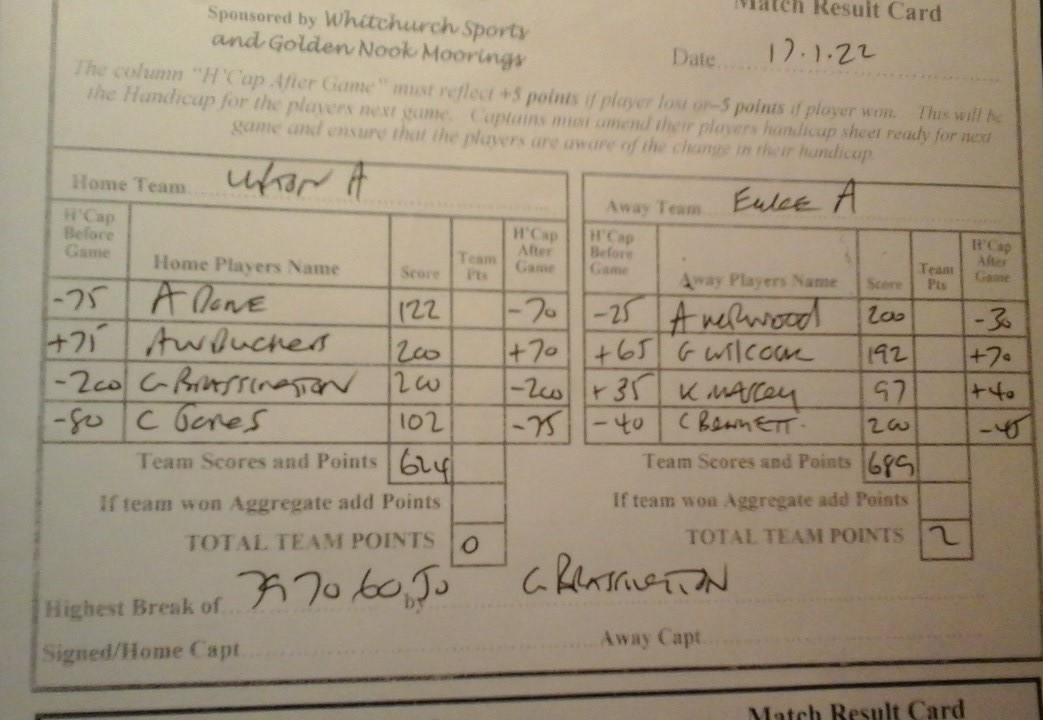 Match Result Card
Sponsored by Whitchurch Sports
and Golden Nook Moorings
Date 17.1.22
The column "H'Cap After Game" must reflect +5 points if player lost or –5 points if player won. This will be
the Handicap for the players next game. Captains must amend their players handicap sheet ready for next
game and ensure that the players are aware of the change in their handicap.
Home Team A
H'Cap Before Game Home Players Name Score Team Pts H'Cap After Game
-75 A Done 122 -70
+75 200 +70
-200 G BRASSINGTON 200 -200
-80 C Jones 102 -75
Team Scores and Points 624
If team won Aggregate add Points
TOTAL TEAM POINTS 0
Away Team A
H'Cap Before Game Away Players Name Score Team Pts H'Cap After Game
-25 A 200 -30
+65 G WILCOCK 192 +70
+35 K MASSEY 97 +40
-40 C BENNETT. 200 -45
Team Scores and Points 689
If team won Aggregate add Points
TOTAL TEAM POINTS 2
Highest Break of 70 60, 50 by G BRASSINGTON
Signed/Home Capt Away Capt
Match Result Card